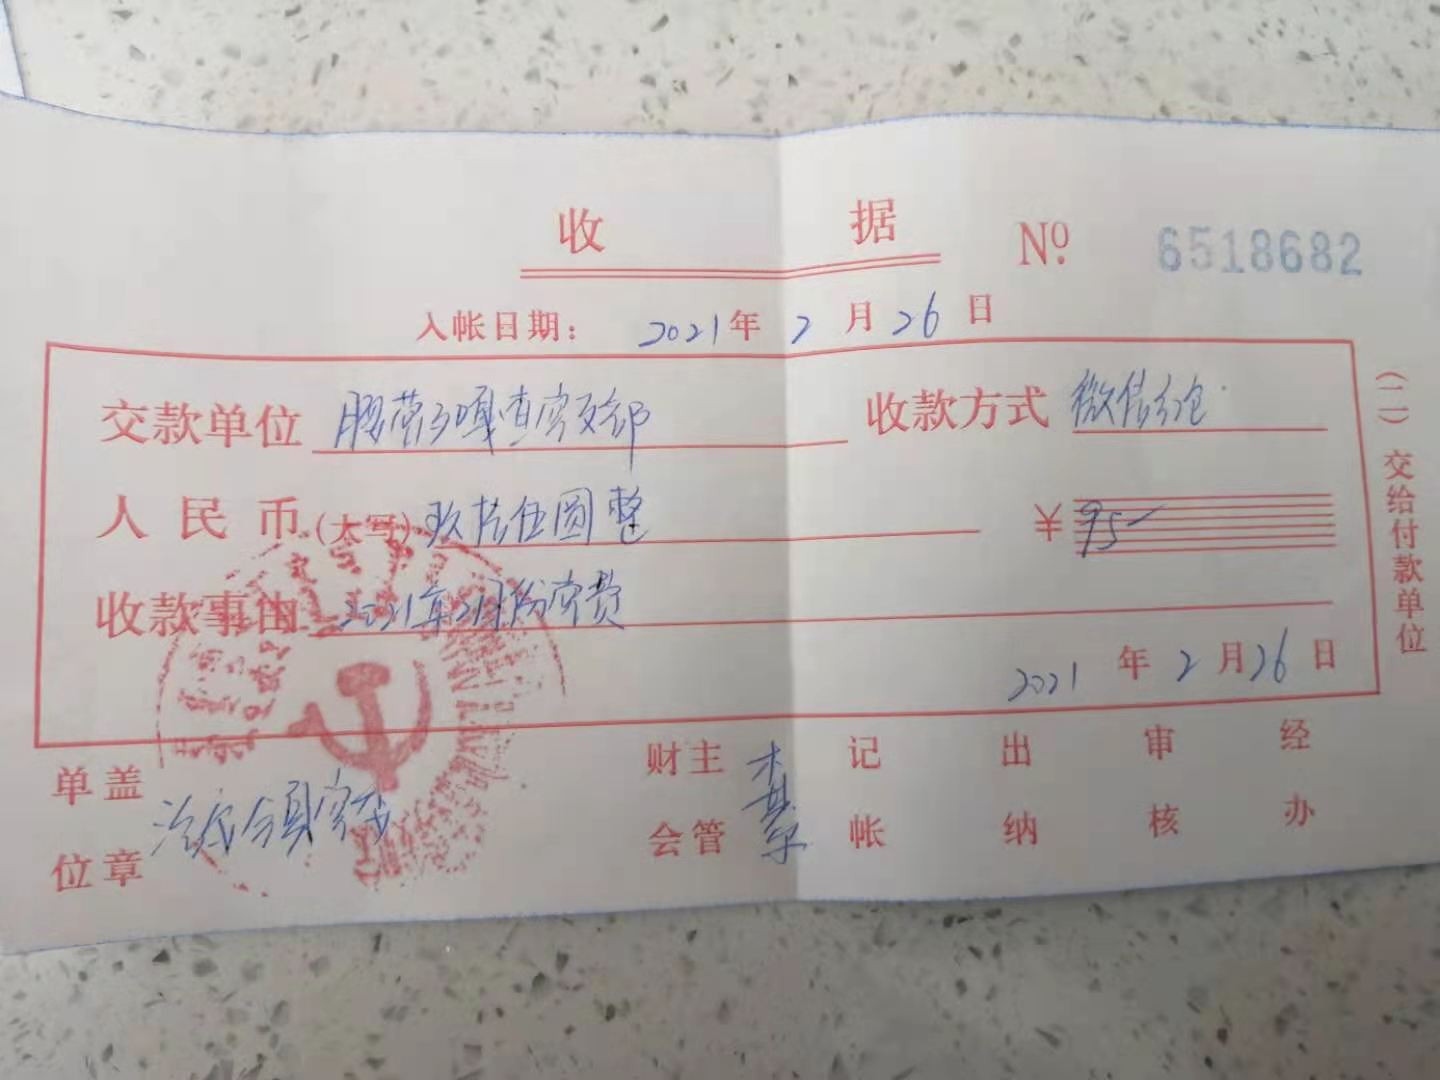 收 据 Nº 6518682
入帐日期: 2021年 2 月 26 日
交款单位 腰营子嘎查党支部 收款方式 微信红包
人民币(大写) 玖拾伍圆整 ¥ 95
收款事由 2021年2月份党费
2021 年 2 月 26 日
单位盖章 财会主管 记帐 出纳 审核 经办
(二)交给付款单位